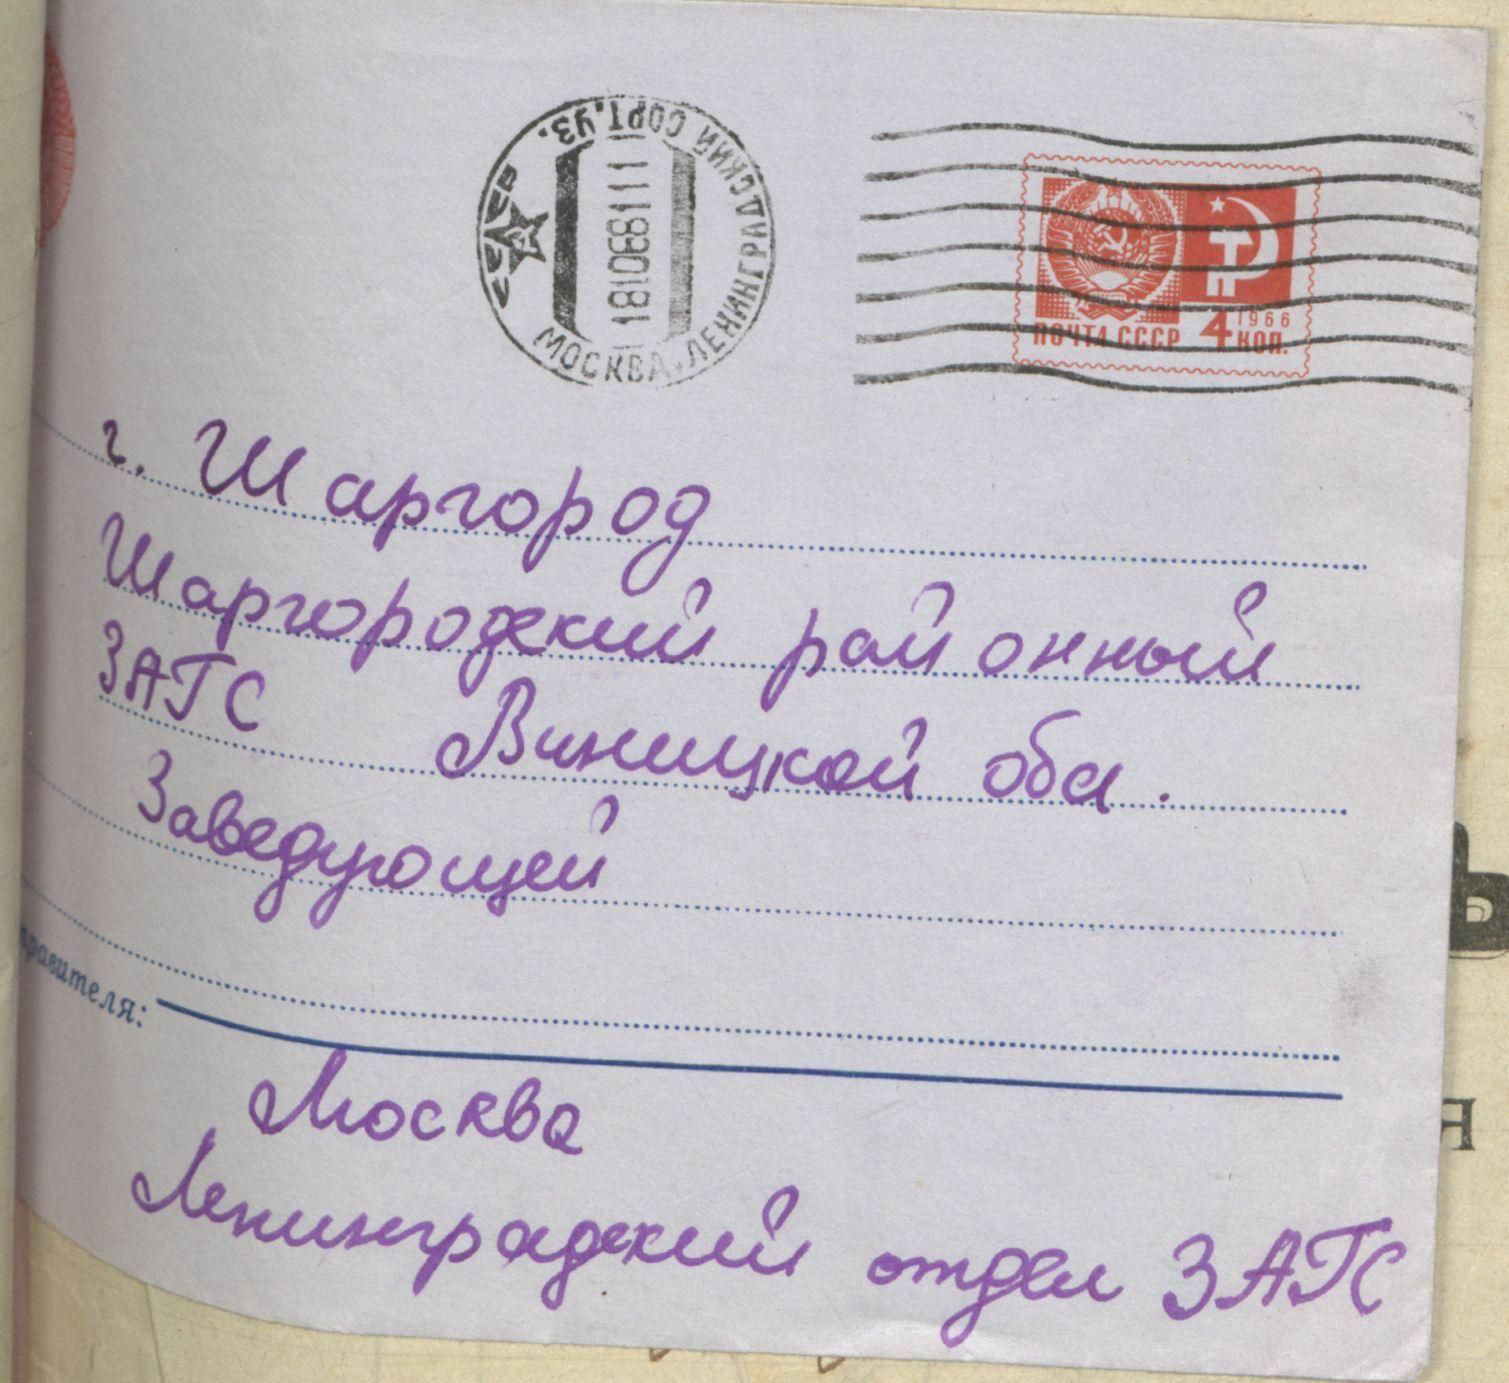 МОСКВА, ЛЕНИНГРАДСКИЙ СОРТ. УЗ.
ПОЧТА СССР 4 КОП.
1966
г. Шаргород
Шаргородский районный
ЗАГС Виницкой обл.
Заведующей
правителя:
Москва
Ленинградский отдел ЗАГС
Ь
Я